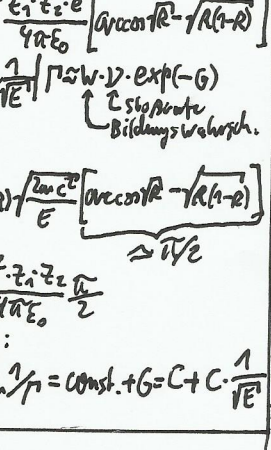 z₁·z₂·e / 4πε₀ [arccos√R - √(R(1-R))]
1/√E | Γ≈W·ν·exp(-G)
Stoßrate
Bildungswahrsch.
√(2mc²/E) [arccos√R - √(R(1-R))]
≈ π/2
·z₁·z₂ / 4πε₀ π/2
:
1/Γ = const. + G = C + C · 1/√E